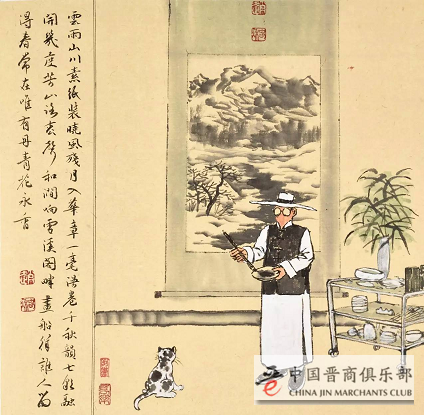 雲雨山川素紙裝曉風殘月入華章一毫漫卷千秋韻七彩融
開幾度芳山聲和澗响雪溪閣畔畫船誰人留
得春常在唯有丹青花永香
中国晋商俱乐部
CHINA JIN MARCHANTS CLUB